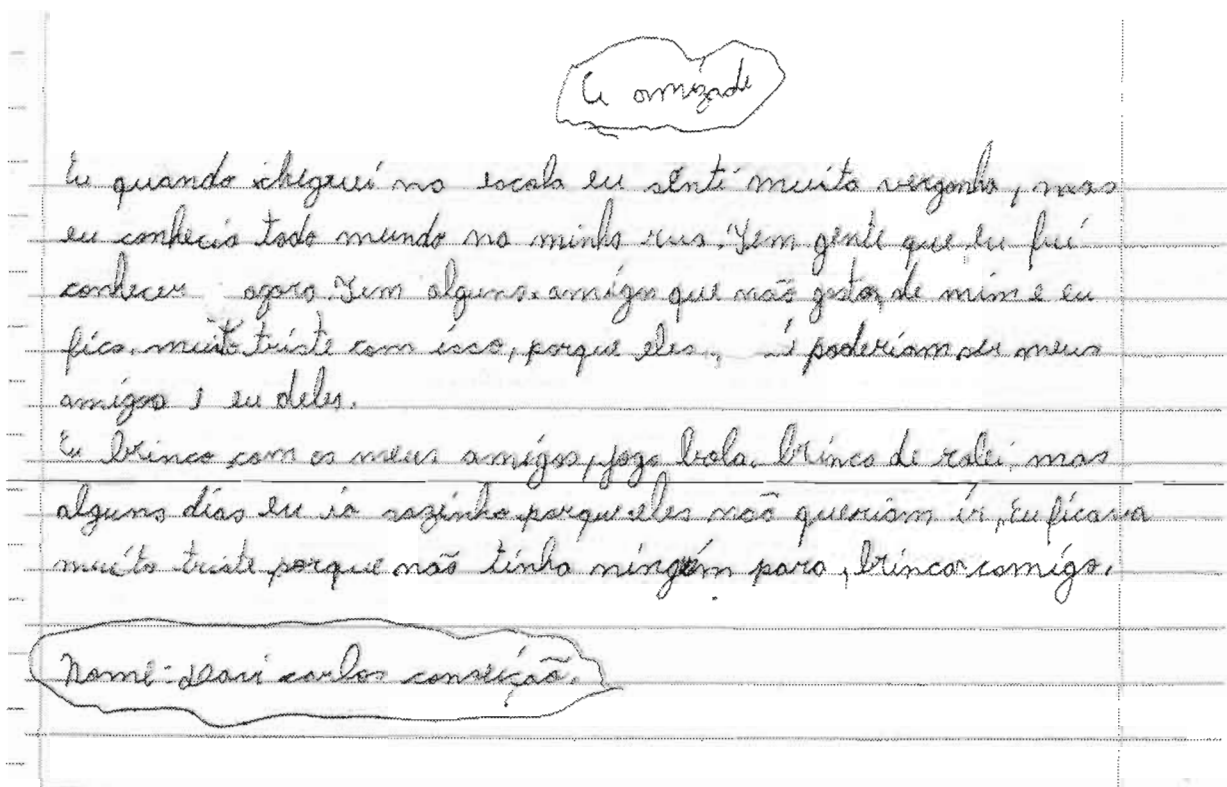 A amizade
Eu quando cheguei na escola eu sènti muita vergonha, mas
eu conhecia todo mundo na minha rua. Tem gente que eu fui
conhecer agora. Tem alguns amigos que não gosta de mim e eu
fico muito triste com isso, porque eles, poderiam ser meus
amigos e eu deles.
Eu brinco com os meus amigos, jogo bola, brinco de mas
alguns dias eu ia sozinho porque eles não queriam ir, Eu ficava
muito triste porque não tinha ningém para, brincar comigo.
Nome: Davi carlos conseição.